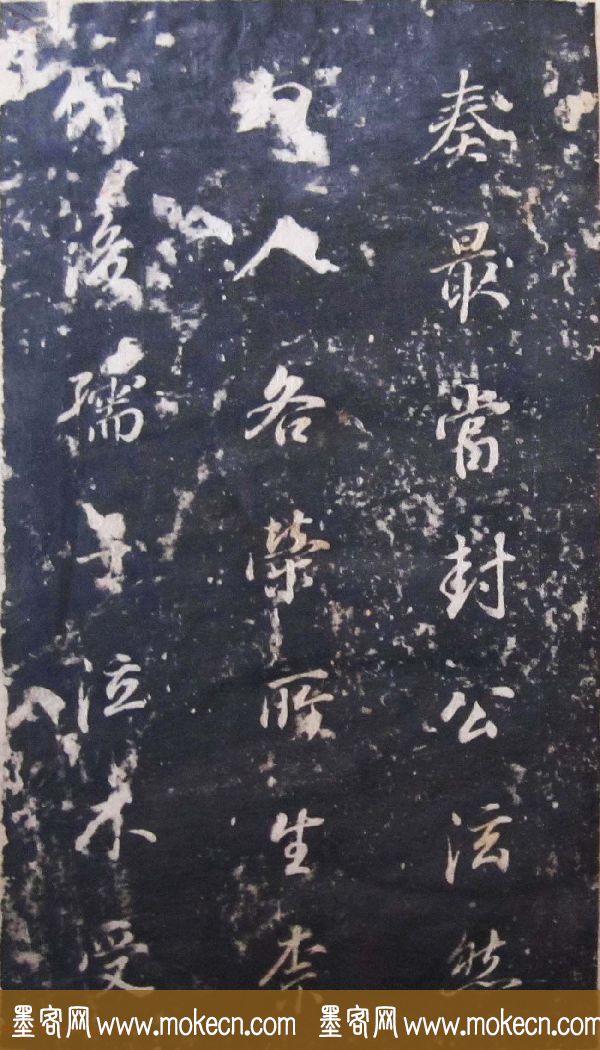 奏最當封公泫然
曰人各榮所生柰
孺子泣不受
墨客网 www.mokecn.com 墨客网 www.mokecn.com